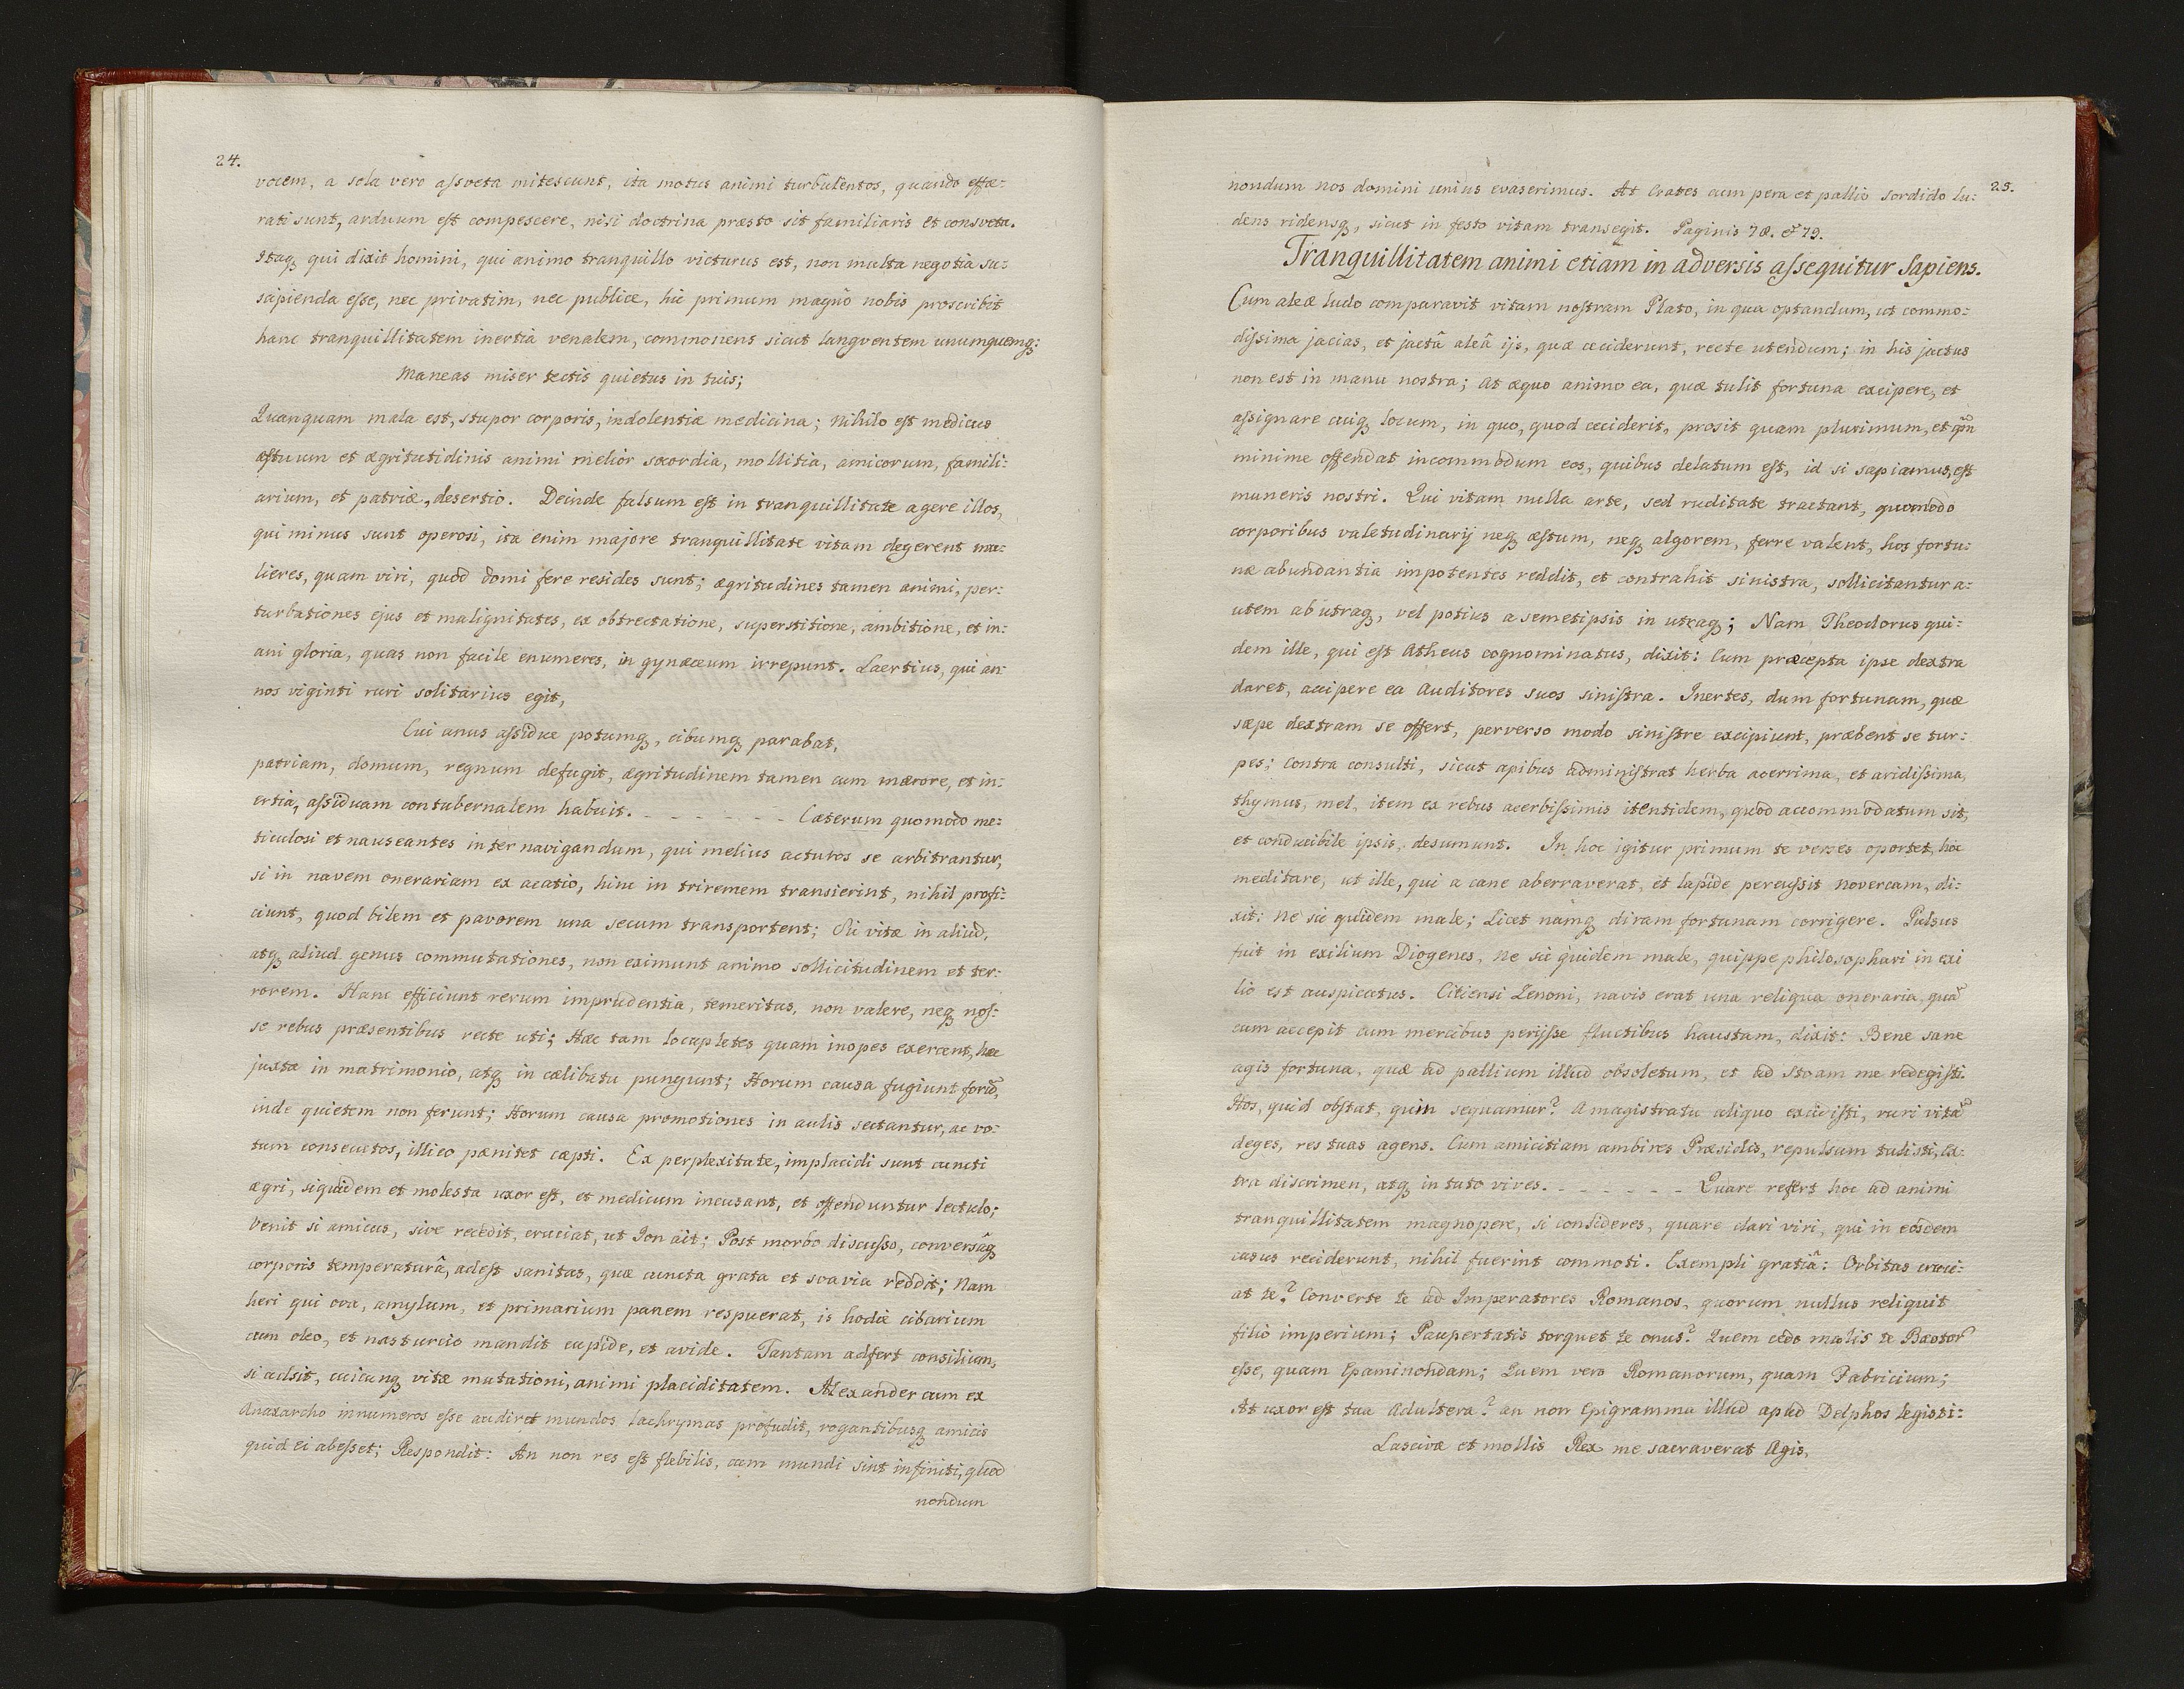 24.
vocem, a sola vero aſsveta mitescunt, ita motus animi turbulentos, quando effæ-
rati sunt, arduum eſt compescere, nisi doctrina præsto sit familiaris et consveta.
Itaq; qui dixit homini, qui animo tranquillo victurus est, non multa negotia su-
sapienda eſse, nec privatim, nec publice, hic primum magno nobis proscribit
hanc tranquillitatem inertia venalem, commonens sicut langventem unumquemq;:
Maneas miser tectis quietus in tuis;
Quanquam mala est, stupor corporis, indolentiæ medicina; Nihilo eſt medicus
æſtuum et ægritutidinis animi melior socordia, mollitia, amicorum, famili-
arium, et patriæ, desertio. Deinde falsum eſt in tranquillitate agere illos,
qui minus sunt operosi, ita enim majore tranquillitate vitam degerent mu-
lieres, quam viri, quod domi fere resides sunt; ægritudines tamen animi, per-
turbationes ejus et malignitates, ex obtrectatione, superstitione, ambitione, et in-
ani gloria, quas non facile enumeres, in gynæceum irrepunt. Laertius, qui an-
nos viginti ruri solitarius egit,
Cui anus aſsidue potumq;, cibumq; parabat,
patriam, domum, regnum defugit, ægritudinem tamen cum mærore, et in-
ertia, aſsiduam contubernalem habuit. - - - - - - - Cæterum quomodo me-
ticulosi et nauseantes inter navigandum, qui melius acturos se arbitrantur,
si in navem onerariam ex acatio, hinc in triremem transierint, nihil profi-
ciunt, quod bilem et pavorem una secum transportent; Sic vitæ in aliud,
atq; aliud genus commutationes, non eximunt animo sollicitudinem et ter-
rorem. Hanc efficiunt rerum imprudentia, temeritas, non valere, neq; noſ-
se rebus præsentibus recte uti; Hæc tam locupletes quam inopes exercent, hæc
juxta in matrimonio, atq; in cælibatu pungunt; Horum causa fugiunt forũ,
inde quietem non ferunt; Horum causa promotiones in aulis sectantur, ac vo-
tum consecutos, illico pænitet cæpti. Ex perplexitate, implacidi sunt cuncti
ægri, siquidem et molesta uxor eſt, et medicum incusant, et offenduntur lectulo;
Venit si amicus, sive recedit, cruciat, ut Ion ait; Post morbo discuſso, conversâq;
corporis temperaturâ, adeſt sanitas, quæ cuncta grata et soavia reddit; Nam
heri qui ova, amylum, et primarium panem respuerat, is hodie cibarium
cum oleo, et nasturcio mandit cupide, et avide. Tantam adfert consilium,
si adsit, cuicunq; vitæ mutationi, animi placiditatem. Alexander cum ex
Anaxarcho innumeros eſse audiret mundos lachrymas profudit, rogantibusq; amicis
quid ei abeſset; Respondit: An non res eſt flebilis, cum mundi sint infiniti, quod
nondum
25.
nondum nos domini unius evaserimus. At Crates cum pera et pallio sordido lu-
dens ridensq;, sicut in festo vitam transegit. Paginis 78. et 79.
Tranquillitatem animi etiam in adversis aſsequitur Sapiens.
Cum aleæ ludo comparavit vitam noſtram Plato, in qua optandum, ut commo-
diſsima jacias, et jactâ aleâ ijs, quæ ceciderunt, recte utendum; in his jactus
non est in manu nostra; At æquo animo ea, quæ tulit fortuna excipere, et
aſsignare cuiq; locum, in quo, quod ceciderit, prosit quam plurimum, et
minime offendat incommodum eos, quibus delatum eſt, id si sapiamus, eſt
muneris nostri. Qui vitam nulla arte, sed ruditate tractant, quomodo
corporibus valetudinarij neq; æſtum, neq; algorem, ferre valent, hos fortu-
næ abundantia impotentes reddit, et contrahit sinistra, sollicitantur a-
utem ab utraq;, vel potius a semetipsis in utraq;; Nam Theodorus qui-
dem ille, qui eſt Atheus cognominatus, dixit: Cum præcepta ipse dextra
daret, accipere ea Auditores suos siniſtra. Inertes, dum fortunam, quæ
sæpe dextram se offert, perverso modo siniſtre excipiunt, præbent se tur-
pes; Contra consulti, sicut apibus adminiſtrat herba acerrima, et aridiſsima,
thymus, mel, item ex rebus acerbiſsimis itentidem, quod accommodatum sit,
et conducibile ipsis, desumunt. In hoc igitur primum te verses oportet, hoc
meditare, ut ille, qui a cane aberraverat, et lapide percuſsit novercam, di-
xit: Ne sic quidem male; Licet namq; diram fortunam corrigere. Pulsus
fuit in exilium Diogenes, ne sic quidem male, quippe philosophari in exi
lio est auspicatus. Citiensi Zenoni, navis erat una reliqua oneraria, quã
cum accepit cum mercibus perijſse fluctibus haustam, dixit: Bene sane
agis fortuna, quæ ad pallium illud obsoletum, et ad Stoam me redegiſti.
Hos, quid obſtat, quin sequamur? A magistratu aliquo excidiſti, ruri vitã
deges, res tuas agens. Cum amicitiam ambires Præsidis, repulsum tulisti, Ex-
tra discrimen, atq; in tuto vives. - - - - - - - Quare refert hoc ad animi
tranquillitatem magnopere, si consideres, quare clari viri, qui in eosdem
casus reciderunt, nihil fuerint commoti. Exempli gratiâ: Orbitas cruci-
at te? Converte te ad Imperatores Romanos, quorum nullus reliquit
filio imperium; Paupertatis torquet te onus? Quem cedo malis te Bæotor̃
eſse, quam Epaminondam; Quem vero Romanorum, quam Fabricium;
At uxor eſt tua Adultera? an non Epigramma illud apud Delphos legisti:
Lascivæ et mollis Rex me sacraverat Agis,